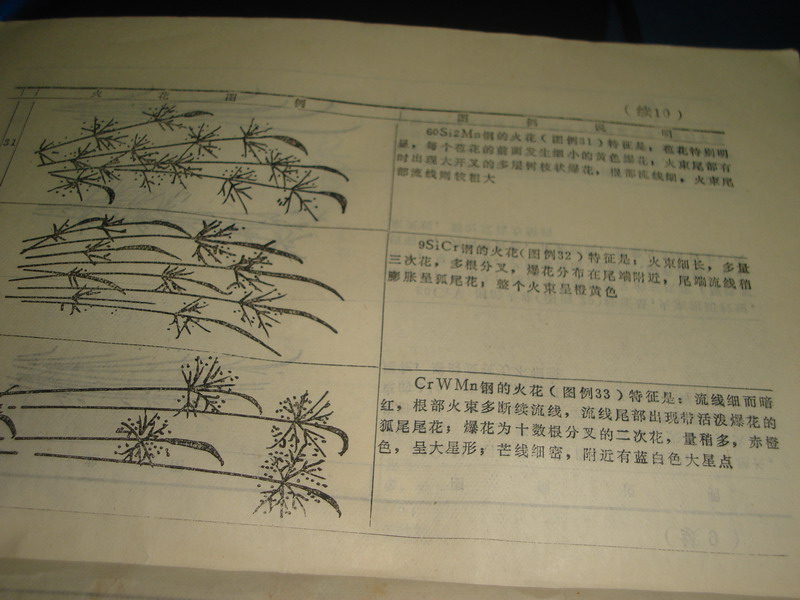 （续10）
火花图例
图例说明
31
60Si2Mn钢的火花（图例31）特征是，苞花特别明
显，每个苞花的前面发生细小的黄色爆花，火束尾部有
时出现大开叉的多层树枝状爆花，根部流线细，火束尾
部流线则较粗大
9SiCr钢的火花（图例32）特征是；火束细长，多量
三次花，多根分叉，爆花分布在尾端附近，尾端流线稍
膨胀呈狐尾花；整个火束呈橙黄色
CrWMn钢的火花（图例33）特征是：流线细而暗
红，根部火束多断续流线，流线尾部出现带活泼爆花的
狐尾尾花；爆花为十数根分叉的二次花，量稍多，赤橙
色，呈大星形；芒线细密，附近有蓝白色大星点